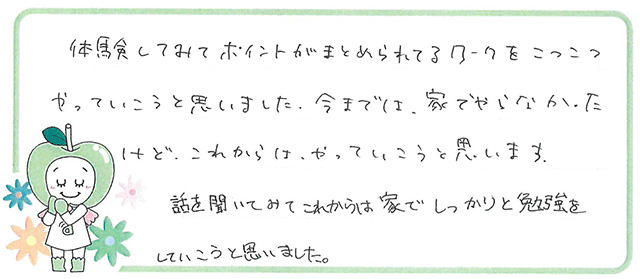 体験してみてポイントがまとめられてるワークをこつこつ
やっていこうと思いました.今までは、家でやらなかった
けど、これからは、やっていこうと思います.
話を聞いてみてこれからは家でしっかりと勉強を
していこうと思いました。